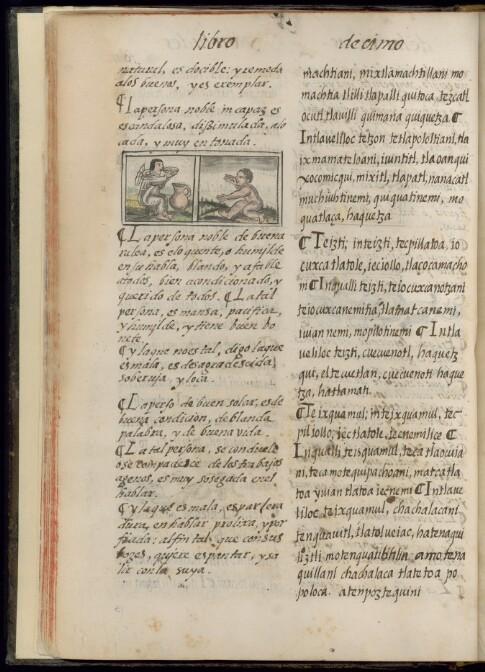 libro decimo
naturel, es docible: y remeda
a los buenos, y es exemplar.
¶ La persona noble incapaz es
escandalosa, dissimulada, alo
cada, y muy entonada.
¶ La persona noble de buena
ralea, es eloquente, o humilde
en su habla, blando, y afable
a todos, bien acondicionado, y
querido de todos. ¶ La tal
persona, es mansa, pacifica,
y humilde, y tiene buen bo
nete.
¶ y la que no es tal, digo la que
es mala, es desagradescida,
soberuja, y loca.
¶ La perso de buen solar: es de
buena condicion, de blanda
palabra, y de buena vida.
¶ La tal persona, se conduele
o se compadece de los trabajos
agenos, es muy sosegada en el
hablar.
¶ y la que es mala, es parlera
dura, en hablar prolixa, y por
fiada: al fin tal, que con sus
bozes, quiere espantar, y sa
lir con la suya.
machtiani, mixtlamachtillani mo
machtia tlilli tlapalli quitoca tezcatl
ocutl tlauilli quimana quiquetza ¶
Intlaueliloc tetzon tetlapololtiani, tla
ixmamateloani, iuinti, tlaoanqui
xocomicqui, mixitl, tlapatl, nanacatl
muchiuhtinemi, quiquatinemi, mo
quatlaça, haquetza
¶ Teizti; inteizti, tecpillatoa, io
cuxca tlatole, iecjollo, tlaçocamacho
ni ¶ Inqualli teizti, teiocuxcanotzani
teiocuxcanemitia, tlatnatcanemi,
iuian nemi, mopilotinemi ¶ Intla
veliloc teizti, cuecuenotl, haquetz
que, eltecuetlan, cuecuenoti haque
tza, hatlamati.
¶ Te ixquamul; inteixquamul, tec
piliollo, iectlatole, iecnemilice ¶
Inqualli teixquamul, teca tlaocuia
ni, teca motequipachoani, matcatla
toa yuian tlatoa iecnemi ¶ Intlaue
liloc teixquamul, chachalacani
tenquauitl, tlatolueiac, hatenaqui
liztli motenquauhtilia amotena
quillani chachalaca tlatetoa po
poloca. atenpoztequini